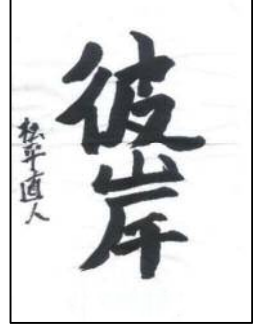 彼岸
松平直人